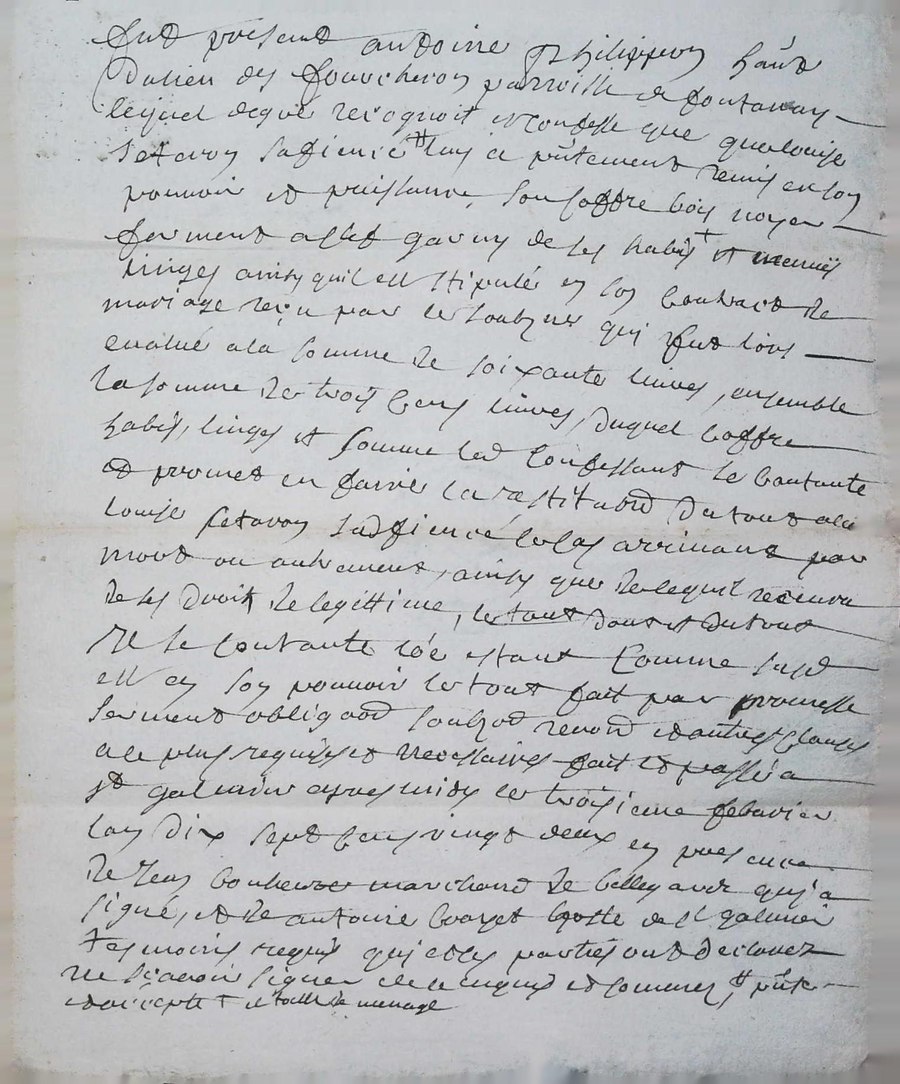 fut present antoine Philipon habt
du lieu des foucheron parroisse de fontanay
lequel degré recognoit et confesse que que louise
setavoy sa fiencé # luy a pñtement remis en son
pouvoir et puissance, son coffre bois noyer
ferment a clef garny de ses habis + et menuë
linges ainsy quil est stipulé en son contract de
mariage reçu par le soubzne qui fut lors
evalué a la somme de soixante livres, ensemble
la somme de trois cens livres, duquel coffre
habis, linges et somme led confessant se contante
et promet en faire la restituon du tout a la
louise setavoy sad fiencé le cas arrivant par
mort ou autrement, ainsy que de lequil recevra
de ses droits de legittime, le tout dont et du tout
Il se contante led estant comme susd
est en son pouvoir le tout fait par promesse
serment obligaon soubzon renon et autres clauses
a ce plus requises et necessaires fait et passé a
st galmier apres midy le troisieme febvrier
lan dix sept cens vingt deux en presence
de Jean marchand de bellegarde qui a
signé, et de antoine hoste de st galmier
tesmoins requis qui et les parties ont declarez
ne sçavoir signer de ce enquis et sommez, # pñte
et acceptte + et toille de menage